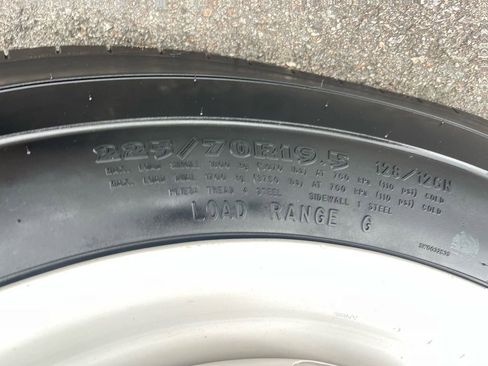 225/70R19.5 128/126N
MAX. LOAD SINGLE 1800 KG (3970 LBS) AT 760 KPA (110 PSI) COLD
MAX. LOAD DUAL 1700 KG (3750 LBS) AT 760 KPA (110 PSI) COLD
PLIES: TREAD 4 STEEL SIDEWALL 1 STEEL
LOAD RANGE G